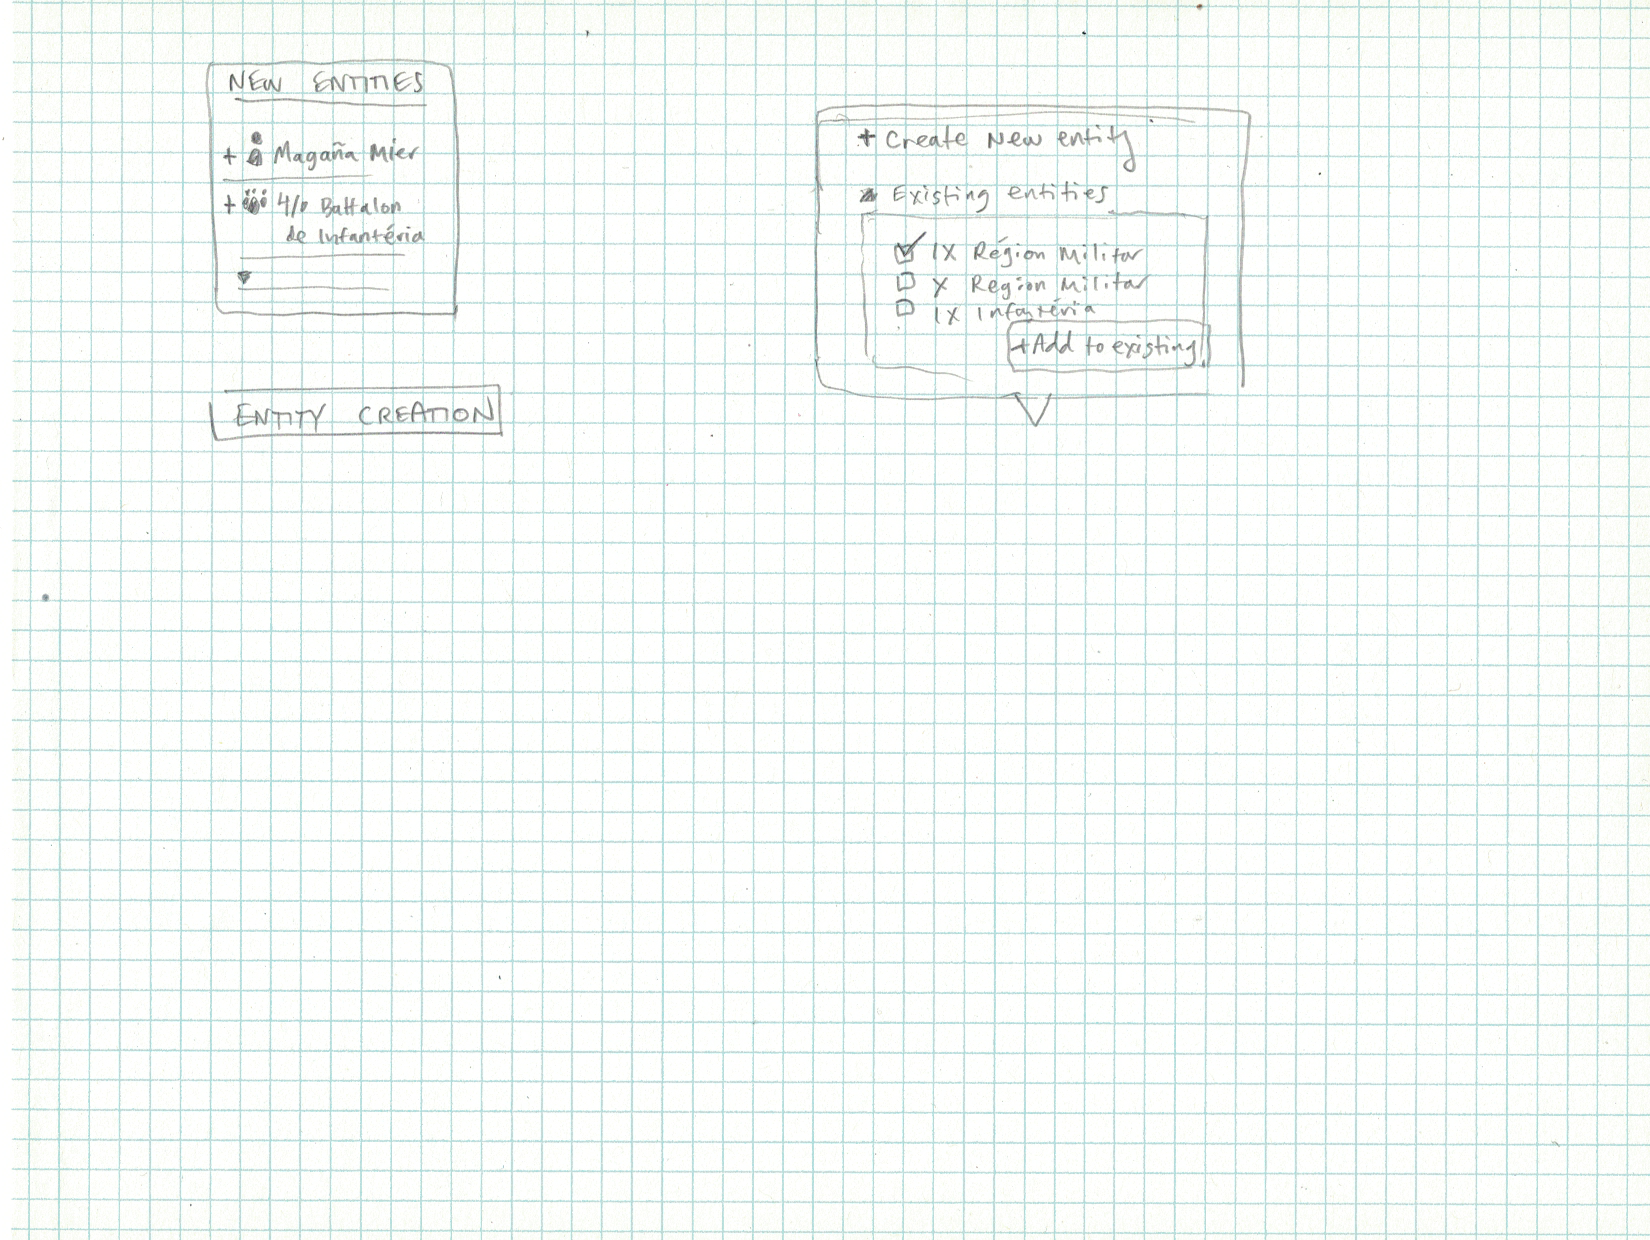 NEW ENTITIES
+ Magaña Mier
+ 4/o Battalon
de Infantéria
ENTITY CREATION
+ Create New entity
Existing entities
IX Région Militar
X Region Militar
IX Infantéria
+Add to existing